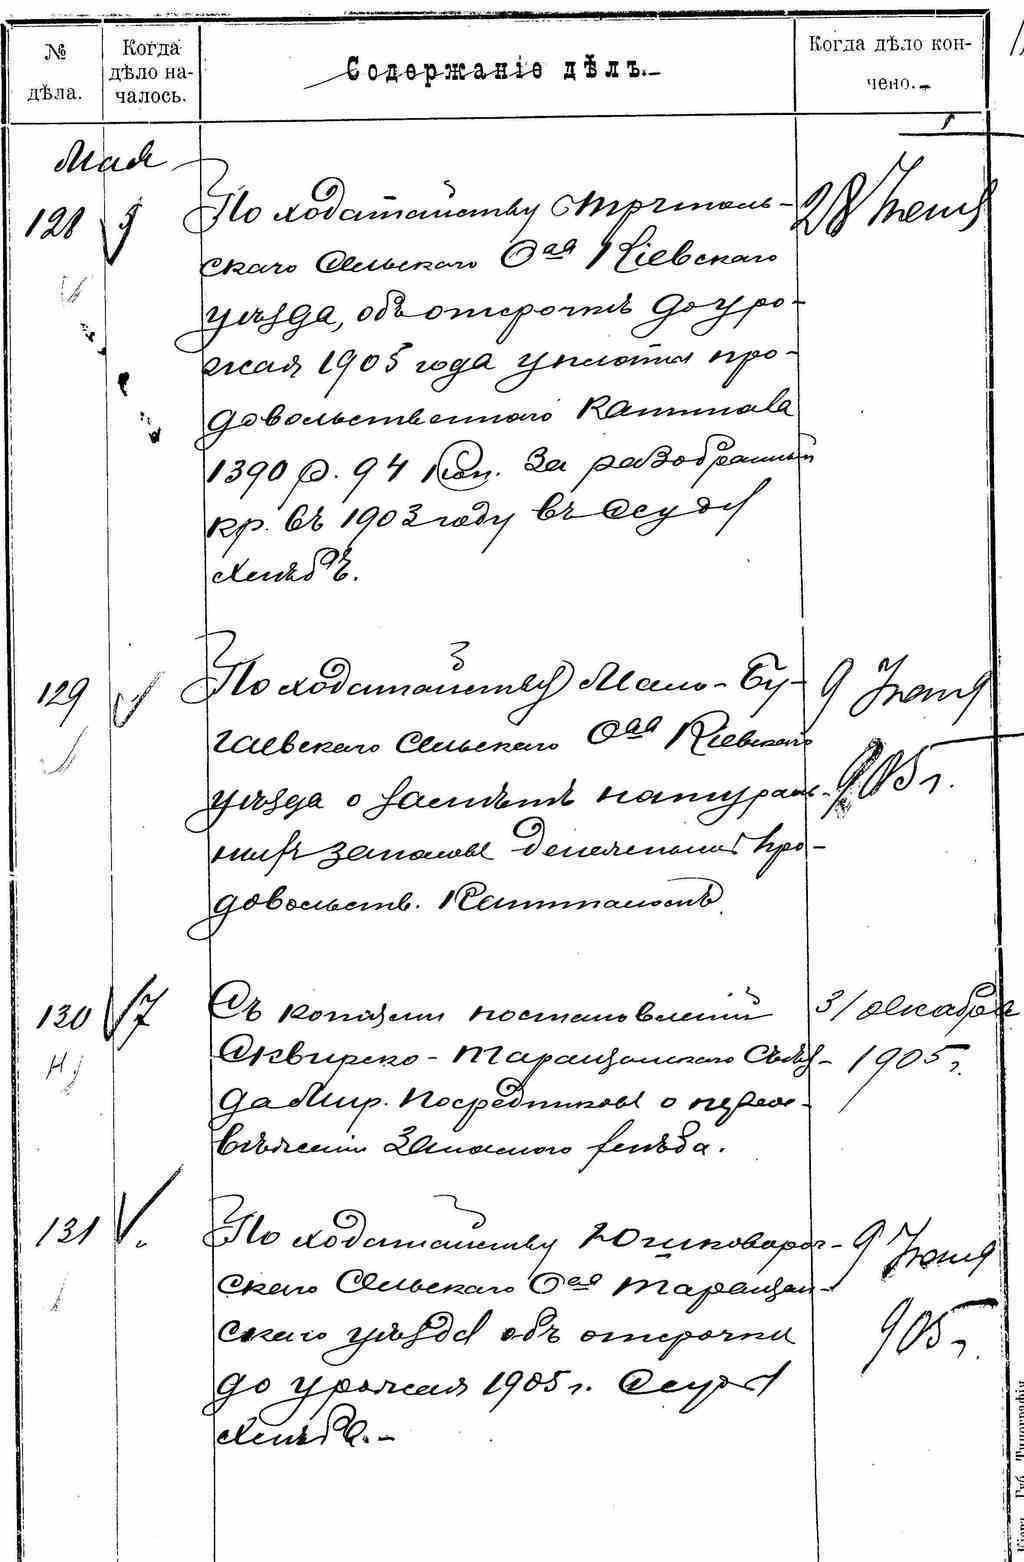 № дѣла.
Когда дѣло началось.
Содержаніе дѣлъ.
Когда дѣло кончено.
Мая
128 5 По ходатайству 28 Іюня
скаго Сельскаго О-ва Кіевскаго
уѣзда, объ отсрочкѣ до уро-
жая 1905 года уплаты про-
довольственнаго капитала
1390 р. 94 коп. за разобранный
кр. въ 1903 году въ ссуду
хлѣбъ.
129 По ходатайству Мало-Бу- 9 Іюня
гаевскаго Сельскаго О-ва Кіевскаго 905 г.
уѣзда о замѣнѣ натураль-
ныхъ запасовъ денежнымъ про-
довольств. капиталомъ
130 7 Съ копіями постановленій 31 декабря
Сквирско-Таращанскаго Съѣз- 1905 г.
да Мир. Посредниковъ о
запаснаго хлѣба.
131 " По ходатайству 9 Іюня
скаго Сельскаго О-ва Таращан-
скаго уѣзда объ отсрочки 905 г.
до урожая 1905 г. ссуды
хлѣба.-
Кіевъ. Губ. Типографія